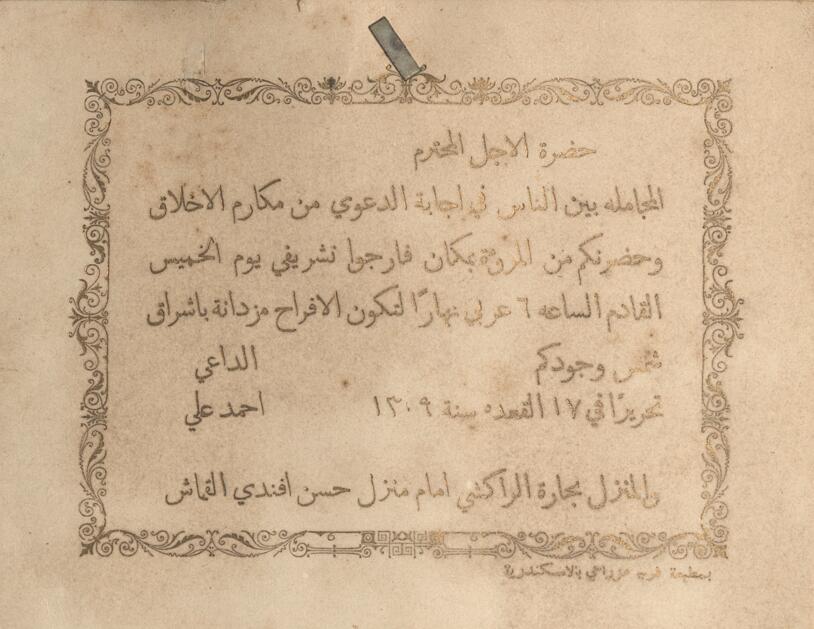 حضرة الاجل المحترم
المجامله بين الناس في اجابة الدعوي من مكارم الاخلاق
وحضرتكم من المروءة بمكان فارجوا تشريفي يوم الخميس
القادم الساعه ٦ عربي نهارًا لتكون الافراح مزدانة باشراق
شمس وجودكم الداعي
تحريرًا في ١٧ القعده سنة ١٣٠٩ احمد علي
والمنزل بحارة الراكشي امام منزل حسن افندي القماش
بمطبعة بالاسكندرية